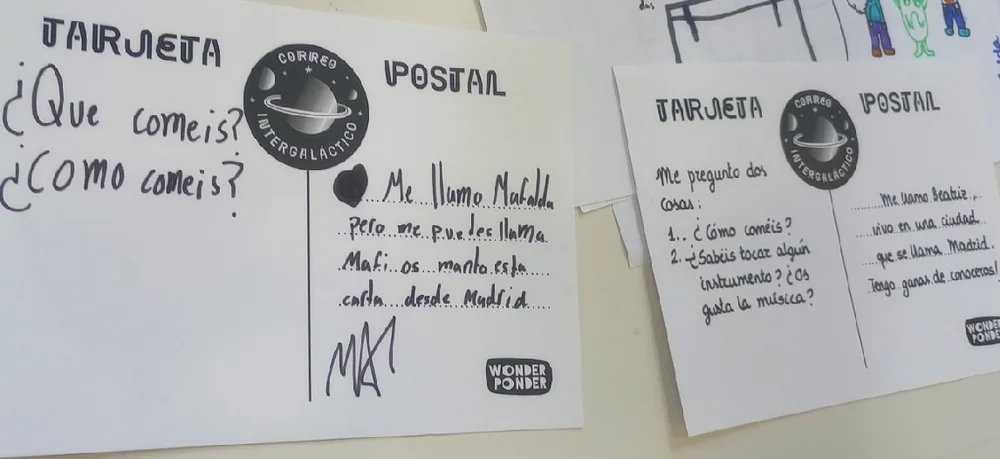 TARJETA
CORREO
INTERGALÁCTICO
POSTAL
¿Que comeis?
¿Como comeis?
Me llamo Mafalda
pero me puedes llama
Mafi os manto esta
carta desde Madrid
MAF
WONDER
PONDER
das
TARJETA
CORREO
INTERGALÁCTICO
POSTAL
Me pregunto dos
cosas:
1.. ¿Cómo coméis?
2. ¿Sabéis tocar algún
instrumento? ¿Os
gusta la música?
Me llamo Beatriz..
vivo en una ciudad
que se llama Madrid.
Tengo ganas de conoceros!
WONDER
PONDER